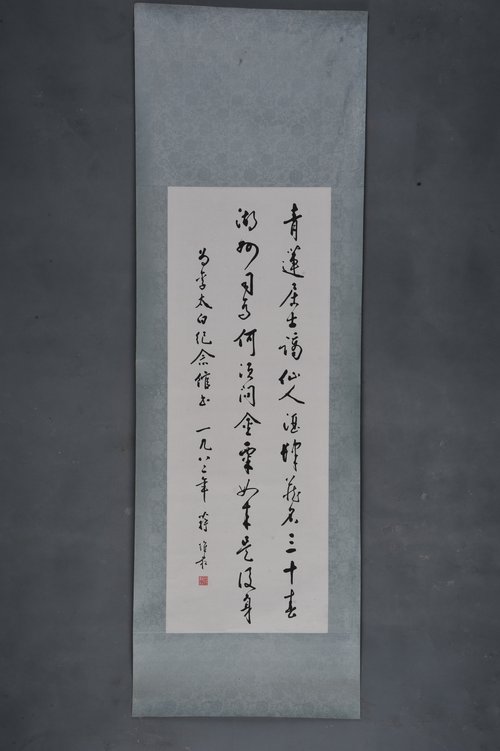 青蓮居士謫仙人酒肆藏名三十春
湖州司馬何須問金粟如來是後身
为李太白纪念馆书 一九八二年 蒋維崧